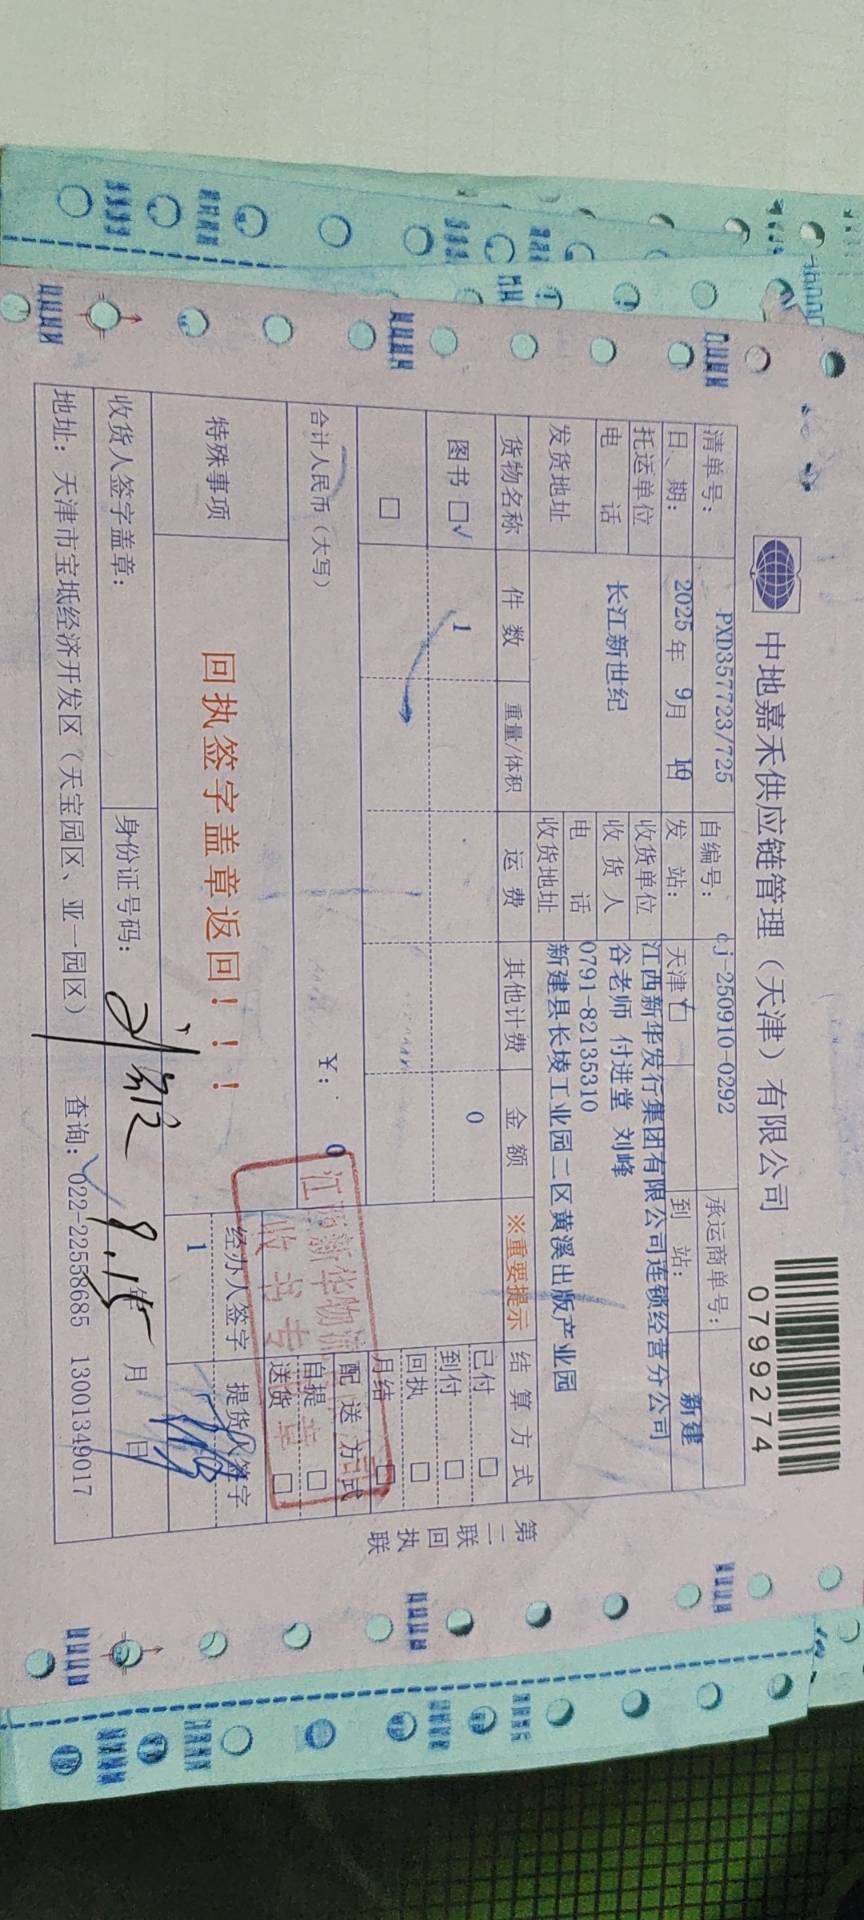 中地嘉禾供应链管理（天津）有限公司
0799274
清单号： PXD357723/725 自编号： cj-250910-0292 承运商单号：
日、期： 2025 年 9 月 10 日 发 站： 天津 到 站： 新建
托运单位 长江新世纪 收货单位 江西新华发行集团有限公司连锁经营分公司
收 货 人 谷老师 付进堂 刘峰
电 话 电 话 0791-82135310
发货地址 收货地址 新建县长堎工业园二区黄溪出版产业园
货物名称 件 数 重量/体积 运 费 其他计费 金 额 ※重要提示 结 算 方 式
图书 □√ 1 0 已付 □
到付 □
□ 回执 □
月结 □
合计人民币（大写） ￥： 0 配 送 方 式
自提 □
送货 □
江西新华物流
收书专
特殊事项 回执签字盖章返回！！！ 经办人签字 提货人签字
1
收货人签字盖章： 身份证号码： 9.15 年 月 日
地址：天津市宝坻经济开发区（天宝园区、亚一园区） 查询：022-22558685 13001349017
第二联 回执联